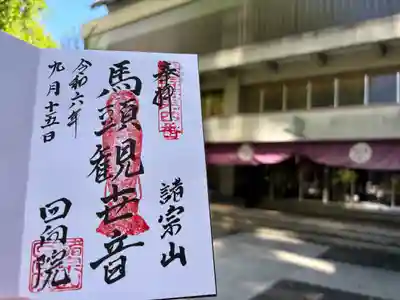 奉拝
諸宗山
馬頭観世音
回向院
令和六年
九月十五日